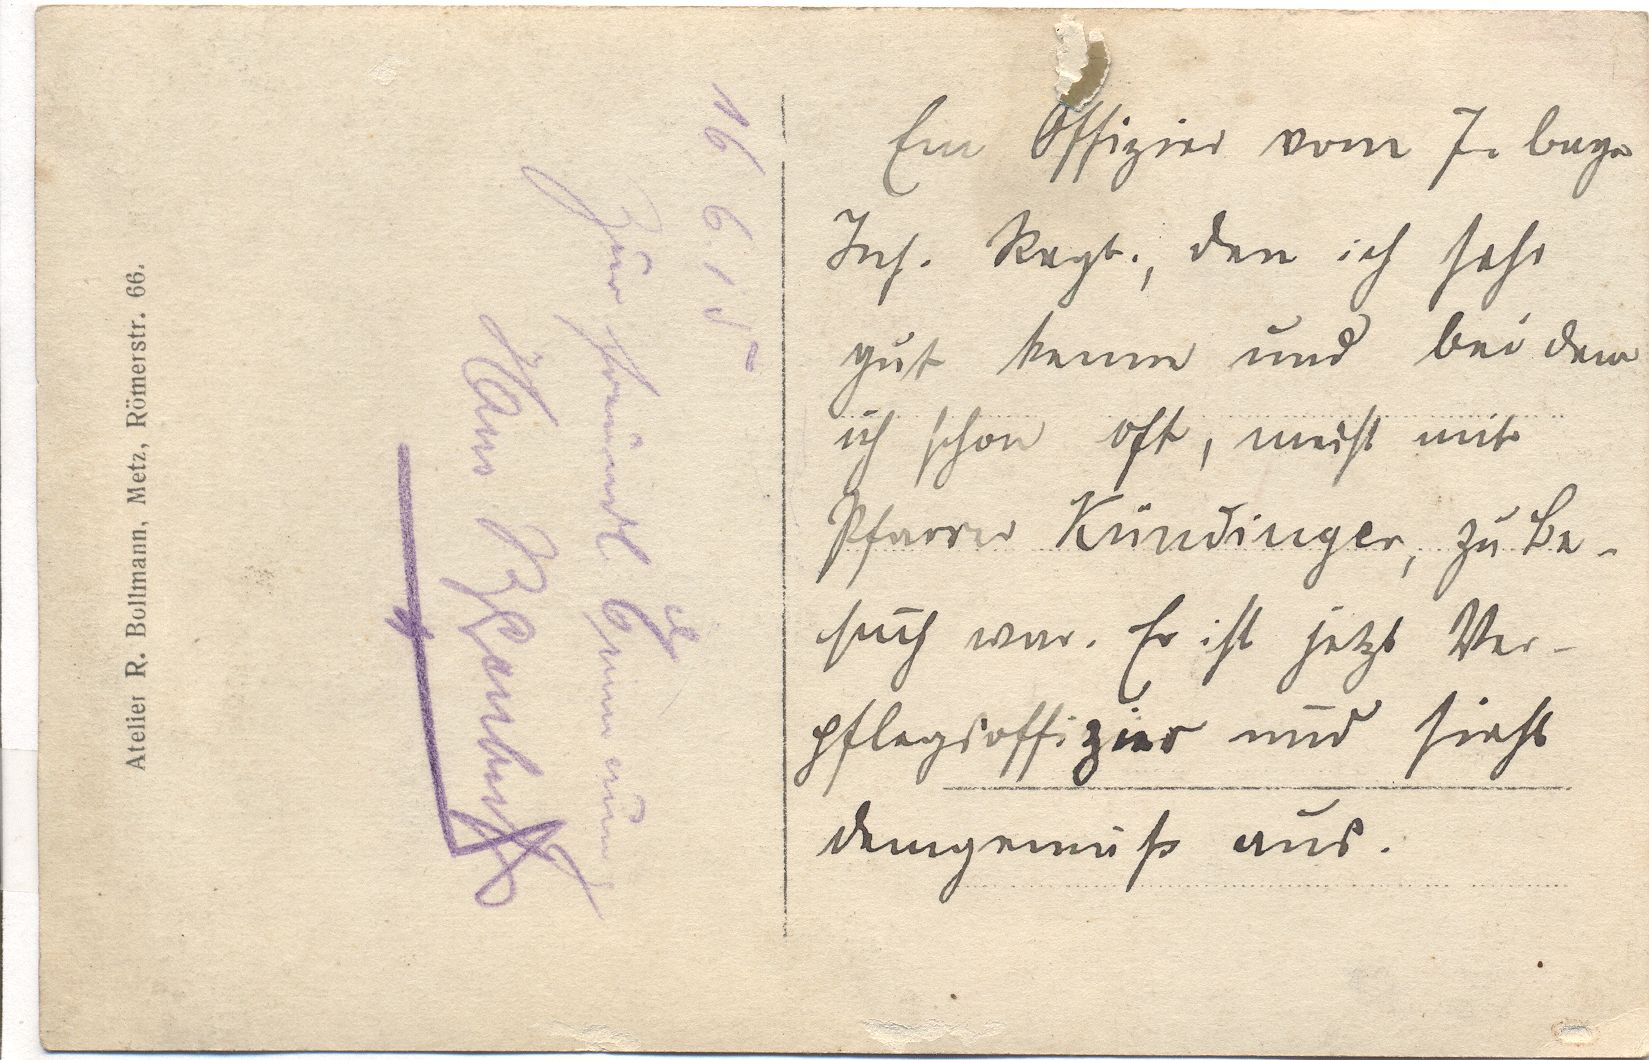 Atelier R. Bollmann, Metz, Römerstr. 66.
16. 6. 15
Zur freundl. Erinnerung
Hans
Ein Offizier vom 7. bay.
Inf. Regt., den ich sehr
gut kenne und bei dem
ich schon oft, meist mit
Pfarrer Kündinger, zu Be-
such war. Er ist jetzt Ver-
pflegsoffizier und sieht
demgemäß aus.